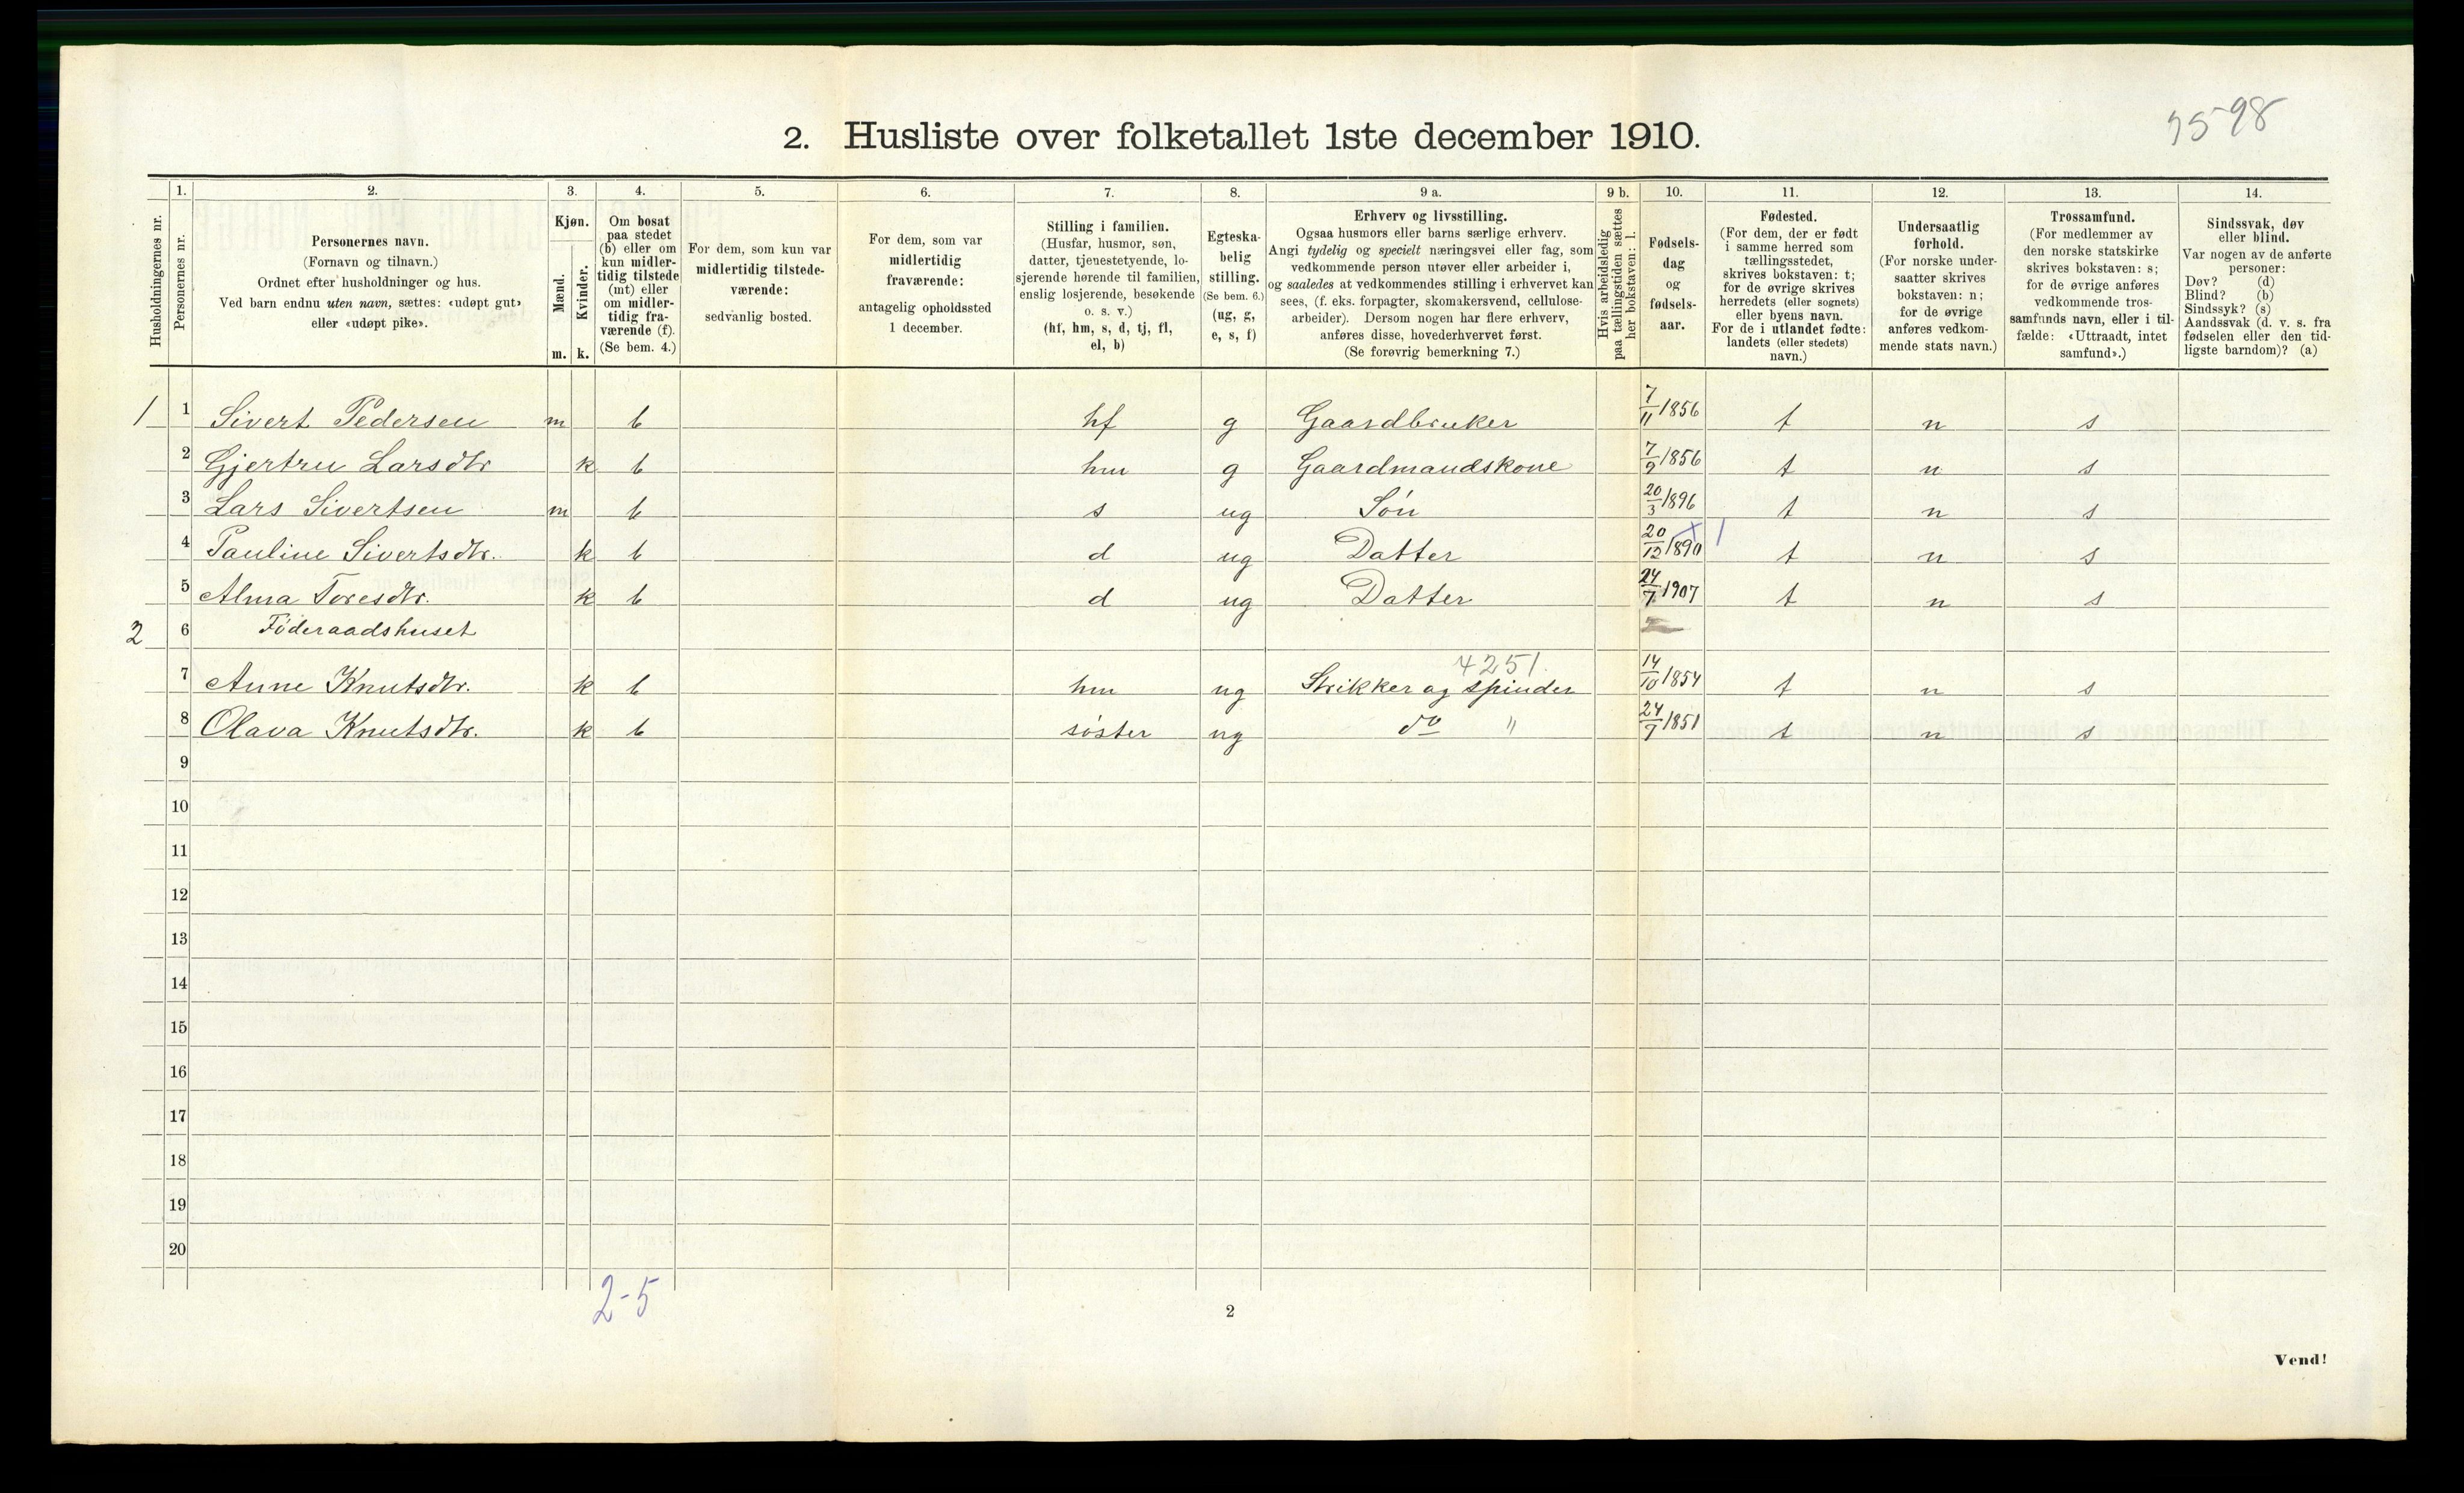 3598
2. Husliste over folketallet 1ste december 1910.
Husholdningernes nr.
1.
Personernes nr.
2.
Personernes navn.
(Fornavn og tilnavn.)
Ordnet efter husholdninger og hus.
Ved barn endnu uten navn, sættes: «udøpt gut»
eller «udøpt pike».
3.
Kjøn.
Mænd.
Kvinder.
m. k.
4.
Om bosat
paa stedet
(b) eller om
kun midler-
tidig tilstede
(mt) eller
om midler-
tidig fra-
værende (f).
(Se bem. 4.)
5.
For dem, som kun var
midlertidig tilstede-
værende:
sedvanlig bosted.
6.
For dem, som var
midlertidig
fraværende:
antagelig opholdssted
1 december.
7.
Stilling i familien.
(Husfar, husmor, søn,
datter, tjenestetyende, lo-
sjerende hørende til familien,
enslig losjerende, besøkende
o. s. v.)
(hf, hm, s, d, tj, fl,
el, b)
8.
Egteska-
belig
stilling.
(Se bem. 6.)
(ug, g,
e, s, f)
9 a.
Erhverv og livsstilling.
Ogsaa husmors eller barns særlige erhverv.
Angi tydelig og specielt næringsvei eller fag, som
vedkommende person utøver eller arbeider i,
og saaledes at vedkommendes stilling i erhvervet kan
sees, (f. eks. forpagter, skomakersvend, cellulose-
arbeider). Dersom nogen har flere erhverv,
anføres disse, hovederhvervet først.
(Se forøvrig bemerkning 7.)
9 b.
Hvis arbeidsledig
paa tællingstiden sættes
her bokstaven: l.
10.
Fødsels-
dag
og
fødsels-
aar.
11.
Fødested.
(For dem, der er født
i samme herred som
tællingsstedet,
skrives bokstaven: t;
for de øvrige skrives
herredets (eller sognets)
eller byens navn.
For de i utlandet fødte:
landets (eller stedets)
navn.)
12.
Undersaatlig
forhold.
(For norske under-
saatter skrives
bokstaven: n;
for de øvrige
anføres vedkom-
mende stats navn.)
13.
Trossamfund.
(For medlemmer av
den norske statskirke
skrives bokstaven: s;
for de øvrige anføres
vedkommende tros-
samfunds navn, eller i til-
fælde: «Uttraadt, intet
samfund».)
14.
Sindssvak, døv
eller blind.
Var nogen av de anførte
personer:
Døv? (d)
Blind? (b)
Sindssyk? (s)
Aandssvak (d. v. s. fra
fødselen eller den tid-
ligste barndom)? (a)
1 1 Sivert Pedersen m b hf g Gaardbruker 7/11 1856 t n s
2 Gjertru Larsdtr k b hm g Gaardmandskone 7/9 1856 t n s
3 Lars Sivertsen m b s ug Søn 20/3 1896 t n s
4 Pauline Sivertsdtr. k b d ug Datter 20/12 1890 t n s
5 Alma Toresdtr. k b d ug Datter 24/7 1907 t n s
2 6 Føderaadshuset
4251.
7 Anne Knutsdtr. k b hm ug Strikker og spinder 14/10 1854 t n s
8 Olava Knutsdtr. k b søster ug do " 24/7 1851 t n s
9
10
11
12
13
14
15
16
17
18
19
20
2-5
2
Vend!